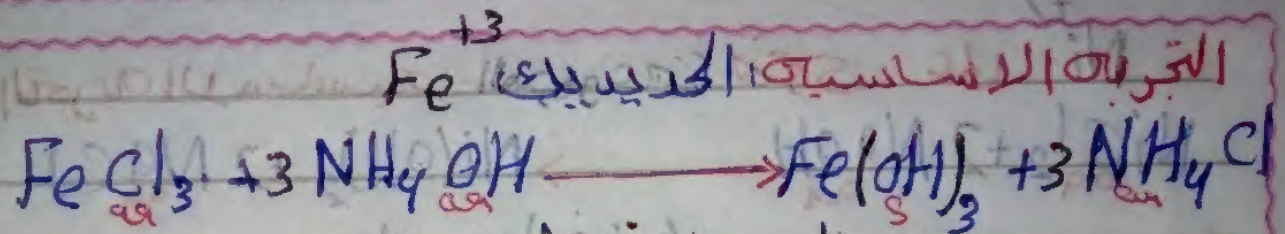 التجربة الاساسية: الحديديك Fe+3
FeCl3 + 3 NH4OH → Fe(OH)3 + 3 NH4Cl
aq aq s aq